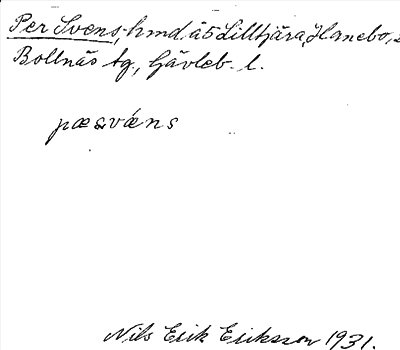 Per Svens, hmd. å 5 Lilltjära, Hanebo,
Bollnäs tg., Gävleb. l.
pæsvæns
Nils Erik Eriksson 1931.